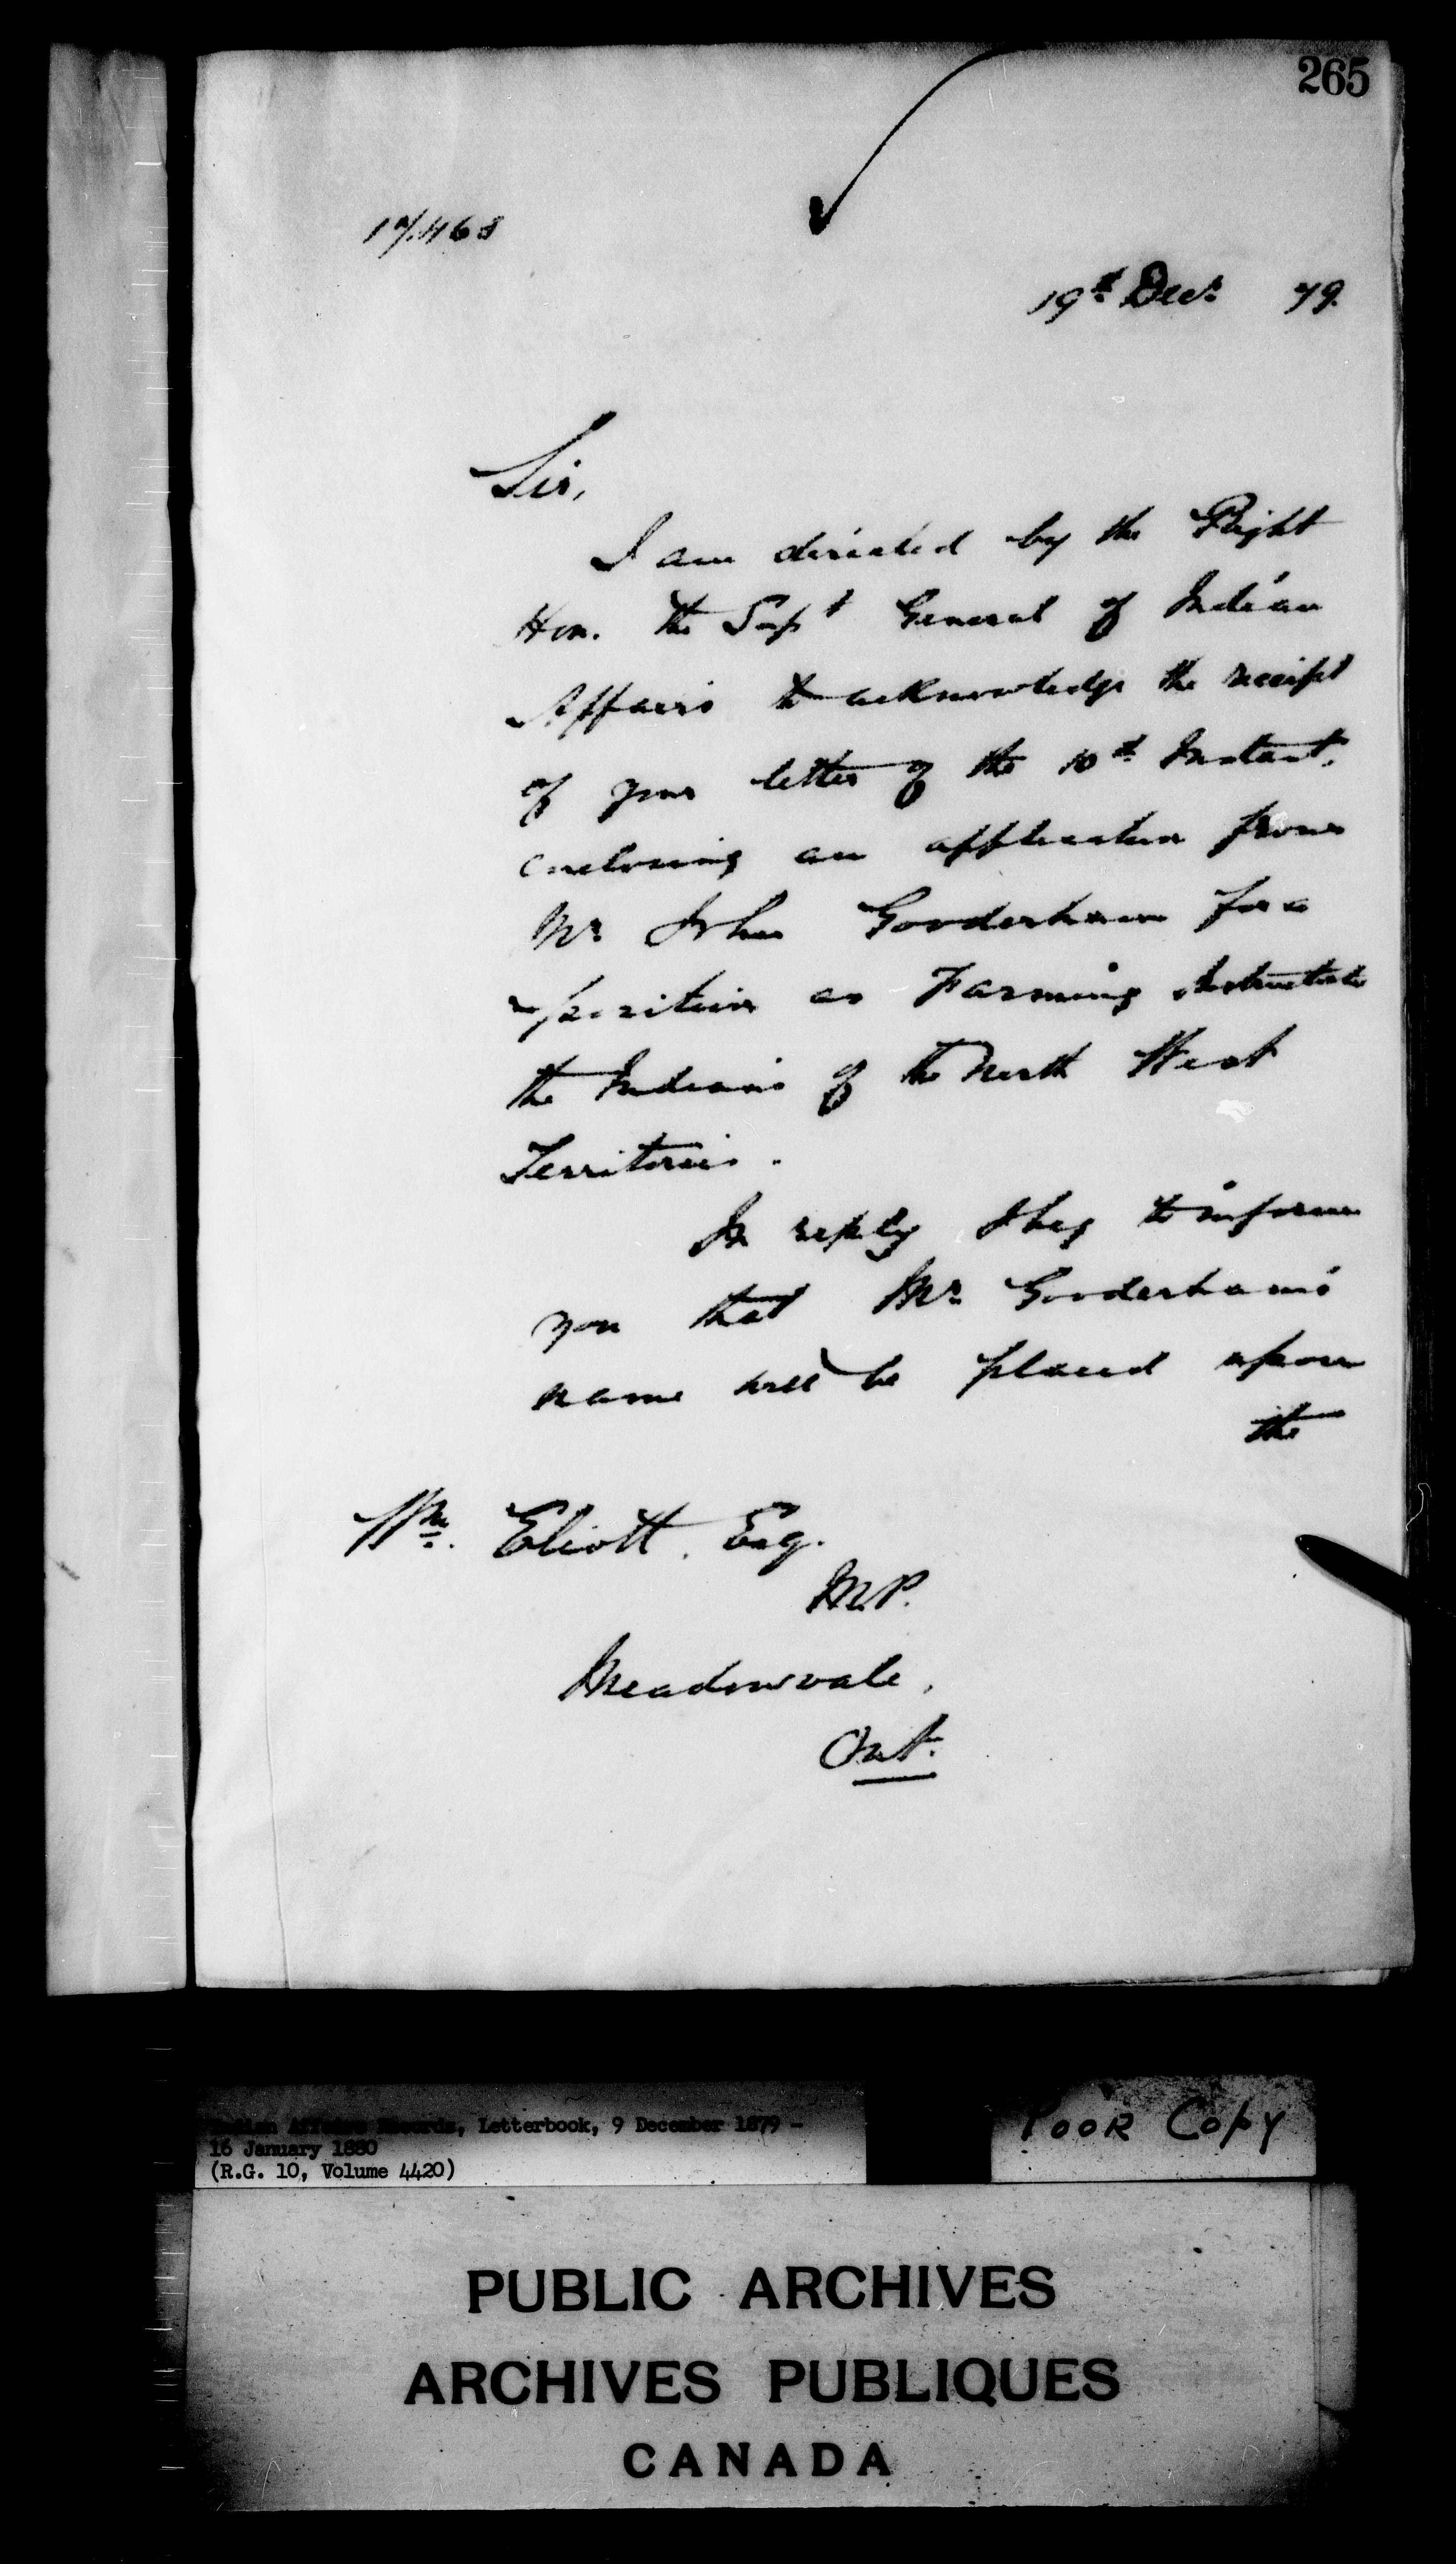 265
19th Decr 79.
Sir,
I am directed by the Right
Hon. the Supt General of Indian
Affairs to acknowledge the receipt
of your letter of the 10th Instant,
enclosing an application from
Mr. John Gooderham for a
position as Farming Instructor to
the Indians of the North West
Territories.
In reply I beg to inform
you that Mr. Gooderham's
name will be placed upon
the
Wm. Eliott, Esq.
M.P.
Meadowvale,
Ont.
Indian Affairs Records, Letterbook, 9 December 1879 -
16 January 1880
(R.G. 10, Volume 4420)
Poor Copy
PUBLIC ARCHIVES
ARCHIVES PUBLIQUES
CANADA